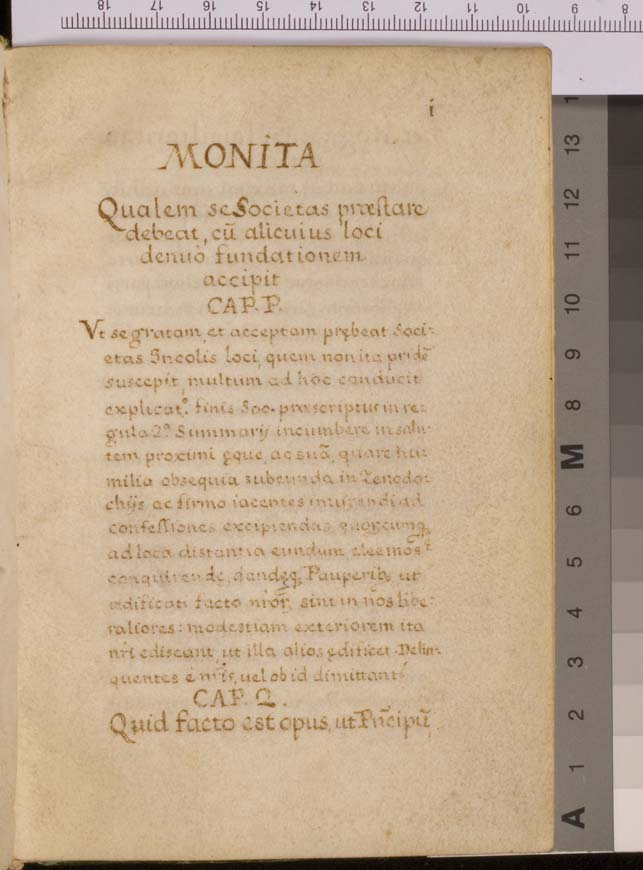 i
MONITA
Qualem se Societas præstare
debeat, cū alicuius loci
denuò fundationem
accipit
CAP. P.
Vt se gratam, et acceptam prębeat Soci-
etas Incolis loci, quem non ita pridē
suscepit, multum ad hoc conducit
explicat.º finis Soc. præscriptus in re-
gula 2ª Summarij incumbere in salu-
tem proximi ęque, ac suā, quare hu-
milia obsequia subeunda in Zenodo-
chijs ac firmo iacentes inuisendi ad
confessiones excipiendas quorcunq
ad loca distantia eundum eleemos
conquirende, dandęq Pauperib, ut
ædificati facto nror, sint in nos libe-
raliores: modestiam exteriorem ita
nri ediscant, ut illa alios ędificet. Delin-
quentes è nris, uel ob id dimittant
CAP. 2.
Quid facto est opus, ut Prncipū